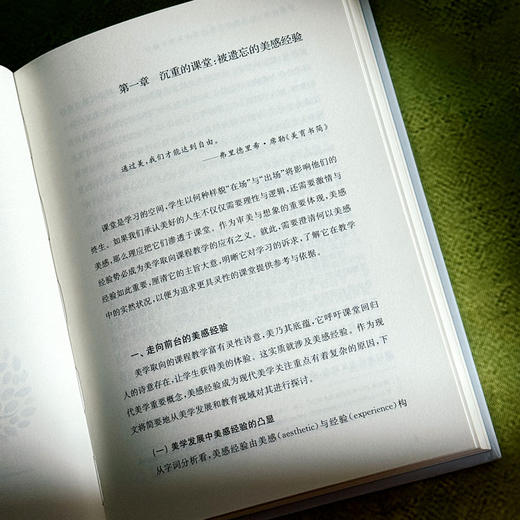 第一章　沉重的课堂：被遗忘的美感经验
通过美，我们才能达到自由。
——弗里德里希·席勒《美育书简》
课堂是学习的空间，学生以何种样貌“在场”与“出场”将影响他们的
终生。如果我们承认美好的人生不仅仅需要理性与逻辑，还需要激情与
美感，那么理应把它们渗透于课堂。作为审美与想象的重要体现，美感
经验势必成为美学取向课程教学的应有之义。就此，需要澄清何以美感
经验如此重要，厘清它的主旨大意，明晰它对学习的诉求，了解它在教学
中的实然状况，以便为追求更具灵性的课堂提供参考与依据。
一、走向前台的美感经验
美学取向的课程教学富有灵性诗意，美乃其底蕴，它呼吁课堂回归
人的诗意存在，让学生获得美的体验。这实质就涉及美感经验。作为现
代美学重要概念，美感经验成为现代美学关注重点有着复杂的原因，下
文将简要地从美学发展和教育视域对其进行探讨。
（一）美学发展中美感经验的凸显
从字词分析看，美感经验由美感（aesthetic）与经验（experience）构